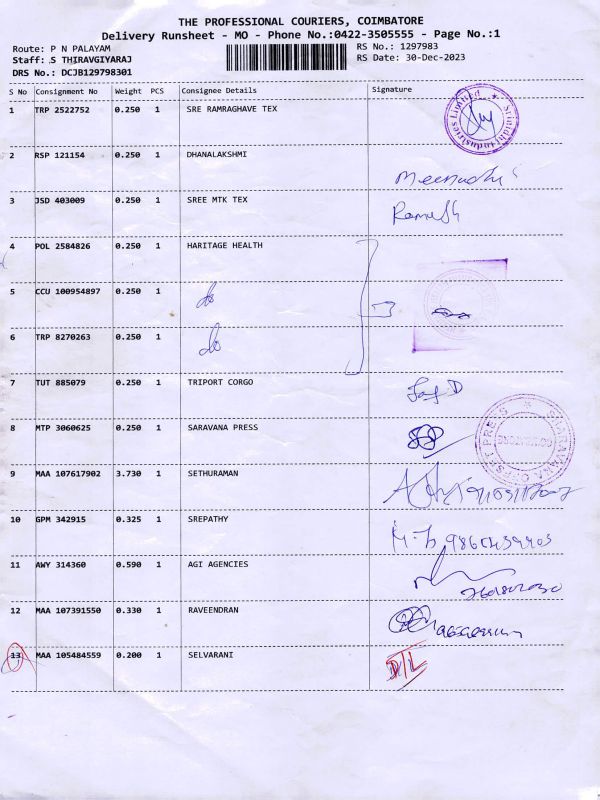 THE PROFESSIONAL COURIERS, COIMBATORE
Delivery Runsheet - MO - Phone No.:0422-3505555 - Page No.:1
Route: P N PALAYAM
Staff: S THIRAVGIYARAJ
DRS No.: DCJB129798301
RS No.: 1297983
RS Date: 30-Dec-2023
S No Consignment No Weight PCS Consignee Details Signature
1 TRP 2522752 0.250 1 SRE RAMRAGHAVE TEX
2 RSP 121154 0.250 1 DHANALAKSHMI
3 JSD 403009 0.250 1 SREE MTK TEX Ramesh
4 POL 2584826 0.250 1 HARITAGE HEALTH
5 CCU 100954897 0.250 1 do
6 TRP 8270263 0.250 1 do
7 TUT 885079 0.250 1 TRIPORT CORGO
8 MTP 3060625 0.250 1 SARAVANA PRESS
9 MAA 107617902 3.730 1 SETHURAMAN
10 GPM 342915 0.325 1 SREPATHY
11 AWY 314360 0.590 1 AGI AGENCIES
12 MAA 107391550 0.330 1 RAVEENDRAN
13 MAA 105484559 0.200 1 SELVARANI D/L